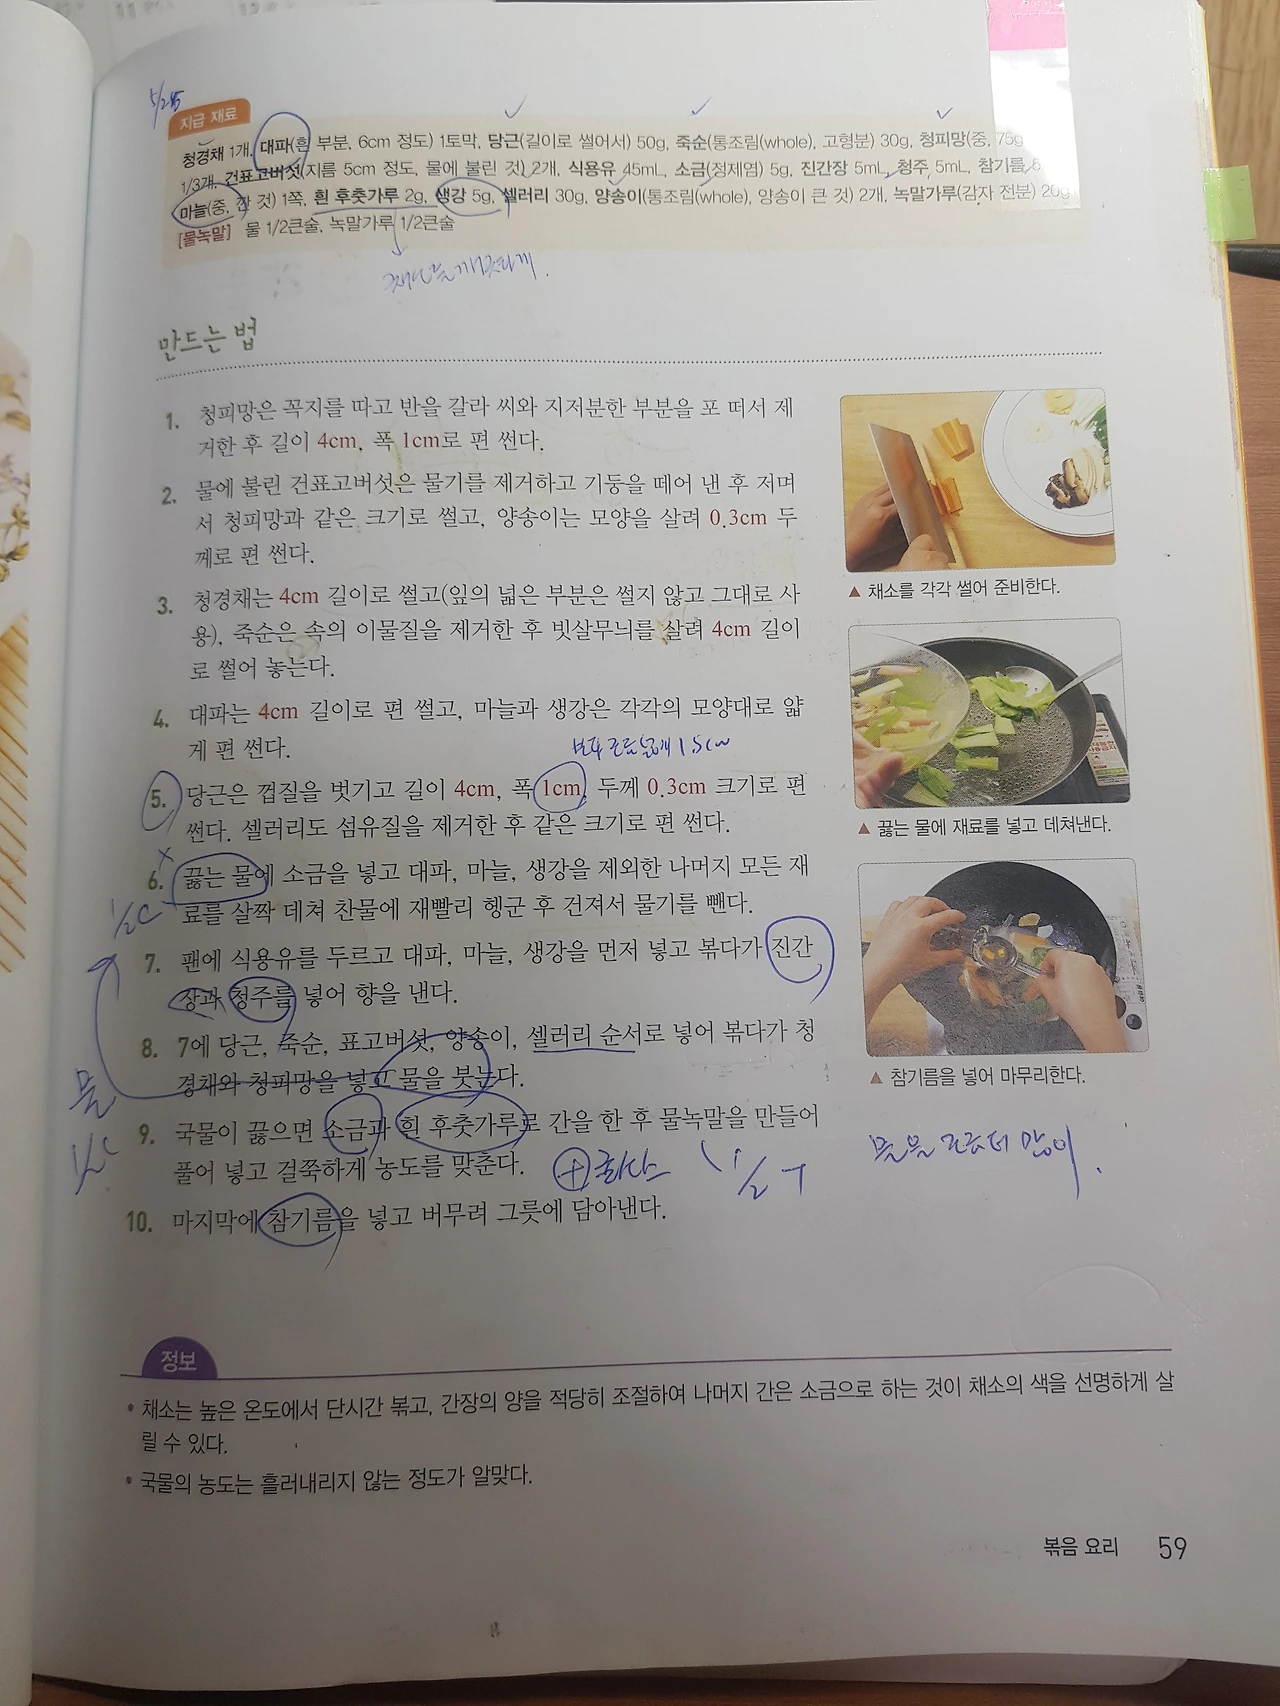 지급 재료
청경채 1개, 대파(흰 부분, 6cm 정도) 1토막, 당근(길이로 썰어서) 50g, 죽순(통조림(whole), 고형분) 30g, 청피망(중, 75g
1/3개, 건표고버섯(지름 5cm 정도, 물에 불린 것) 2개, 식용유 45mL, 소금(정제염) 5g, 진간장 5mL, 청주 5mL, 참기름
마늘(중, 깐 것) 1쪽, 흰 후춧가루 2g, 생강 5g, 셀러리 30g, 양송이(통조림(whole), 양송이 큰 것) 2개, 녹말가루(감자 전분) 20g
[물녹말] 물 1/2큰술, 녹말가루 1/2큰술
만드는 법
1. 청피망은 꼭지를 따고 반을 갈라 씨와 지저분한 부분을 포 떠서 제
거한 후 길이 4cm, 폭 1cm로 편 썬다.
2. 물에 불린 건표고버섯은 물기를 제거하고 기둥을 떼어 낸 후 저며
서 청피망과 같은 크기로 썰고, 양송이는 모양을 살려 0.3cm 두
께로 편 썬다.
3. 청경채는 4cm 길이로 썰고(잎의 넓은 부분은 썰지 않고 그대로 사
용), 죽순은 속의 이물질을 제거한 후 빗살무늬를 살려 4cm 길이
로 썰어 놓는다.
4. 대파는 4cm 길이로 편 썰고, 마늘과 생강은 각각의 모양대로 얇
게 편 썬다.
5. 당근은 껍질을 벗기고 길이 4cm, 폭 1cm, 두께 0.3cm 크기로 편
썬다. 셀러리도 섬유질을 제거한 후 같은 크기로 편 썬다.
6. 끓는 물에 소금을 넣고 대파, 마늘, 생강을 제외한 나머지 모든 재
료를 살짝 데쳐 찬물에 재빨리 헹군 후 건져서 물기를 뺀다.
1/2C
7. 팬에 식용유를 두르고 대파, 마늘, 생강을 먼저 넣고 볶다가 진간
장과 청주를 넣어 향을 낸다.
8. 7에 당근, 죽순, 표고버섯, 양송이, 셀러리 순서로 넣어 볶다가 청
경채와 청피망을 넣고 물을 붓는다.
물
9. 국물이 끓으면 소금과 흰 후춧가루로 간을 한 후 물녹말을 만들어
풀어 넣고 걸쭉하게 농도를 맞춘다.
1/2 T
10. 마지막에 참기름을 넣고 버무려 그릇에 담아낸다.
▲ 채소를 각각 썰어 준비한다.
▲ 끓는 물에 재료를 넣고 데쳐낸다.
▲ 참기름을 넣어 마무리한다.
정보
• 채소는 높은 온도에서 단시간 볶고, 간장의 양을 적당히 조절하여 나머지 간은 소금으로 하는 것이 채소의 색을 선명하게 살
릴 수 있다.
• 국물의 농도는 흘러내리지 않는 정도가 알맞다.
볶음 요리 59